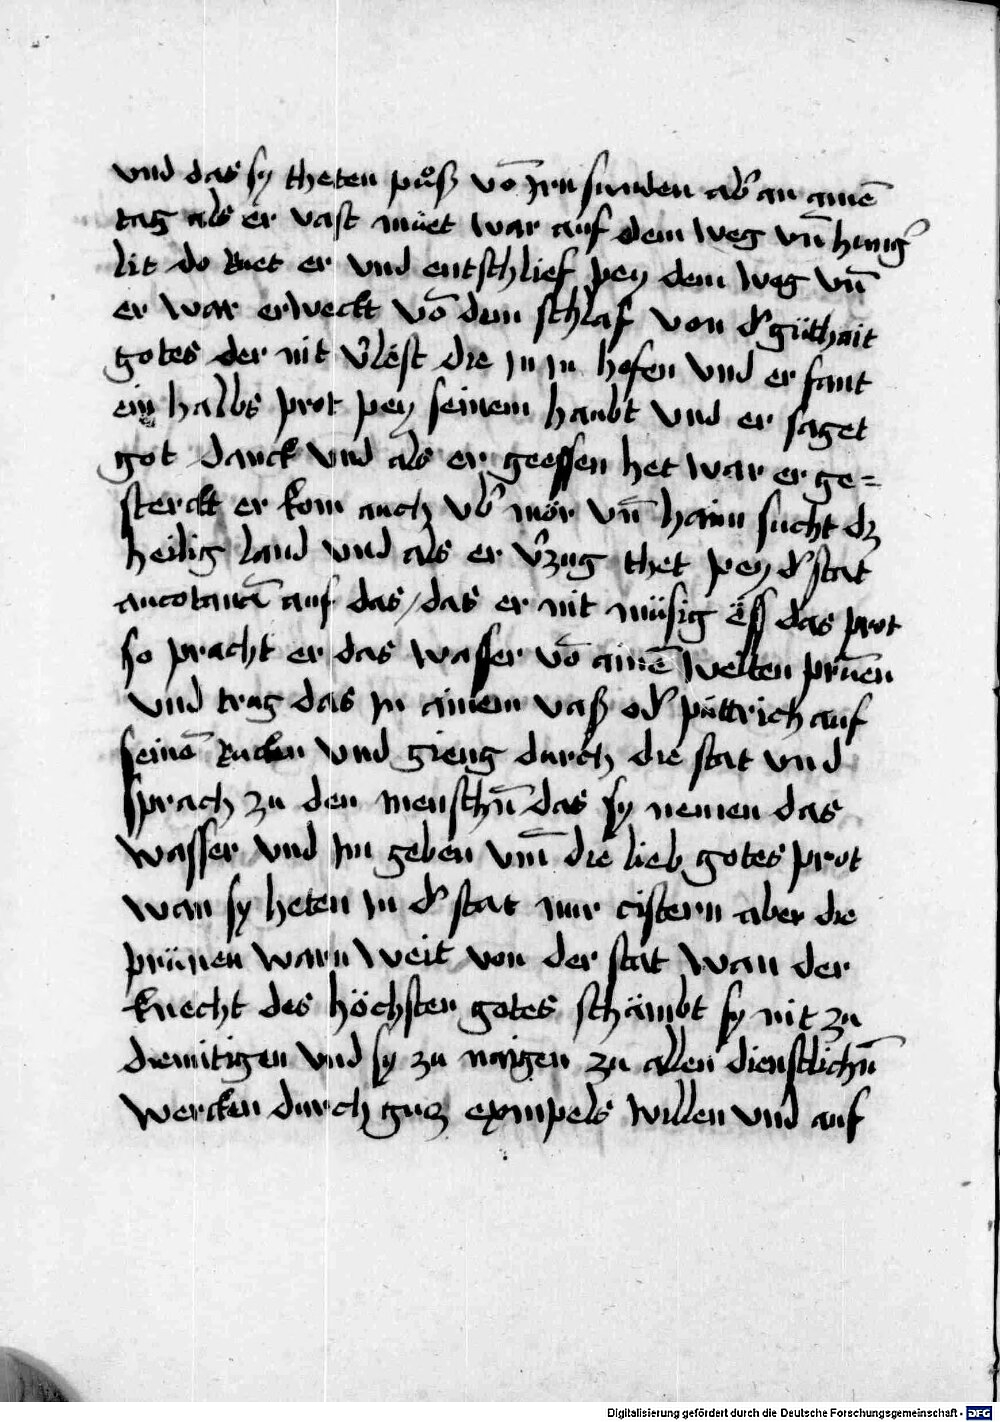 vnd das sy theten půß vō jrn sunden ab̛ an ainē
tag als er vast müet war auf dem weg vn̄ hung̛
lit do ruet er vnd entschlief pey dem weg vn̄
er war erweckt vō dem schlaf von d̛ güthait
gotes der nit v̛lest die jn jn hofen vnd er fant
ein halbs prot pey seinem haubt vnd er saget
got danck vnd als er geessen het war er ge=
sterckt er kom auch vb̛ mör vn̄ haim sucht dz
heilig land vnd als er v̛zug thet pey d̛ stat
anco auf das / das er nit müsig ëss das prot
so pracht er das wasser vō ainē weiten prūen
vnd trug das jn ainem vaß od̛ püttrich auf
seinē rucken vnd gieng durch die stat vnd
sprach zu den menschn̄ das sy nemen das
wasser vnd jm geben vm̄ die lieb gotes prot
wan sy heten jn d̛ stat nur cistern aber die
prünen warn weit von der stat wan der
knecht des höchsten gotes schämbt sy nit zu
diemitigen vnd sy zu naigen zu allen dienstlichn̄
wercken durch gutz exempels willen vnd auf
Digitalisierung gefördert durch die Deutsche Forschungsgemeinschaft - DFG